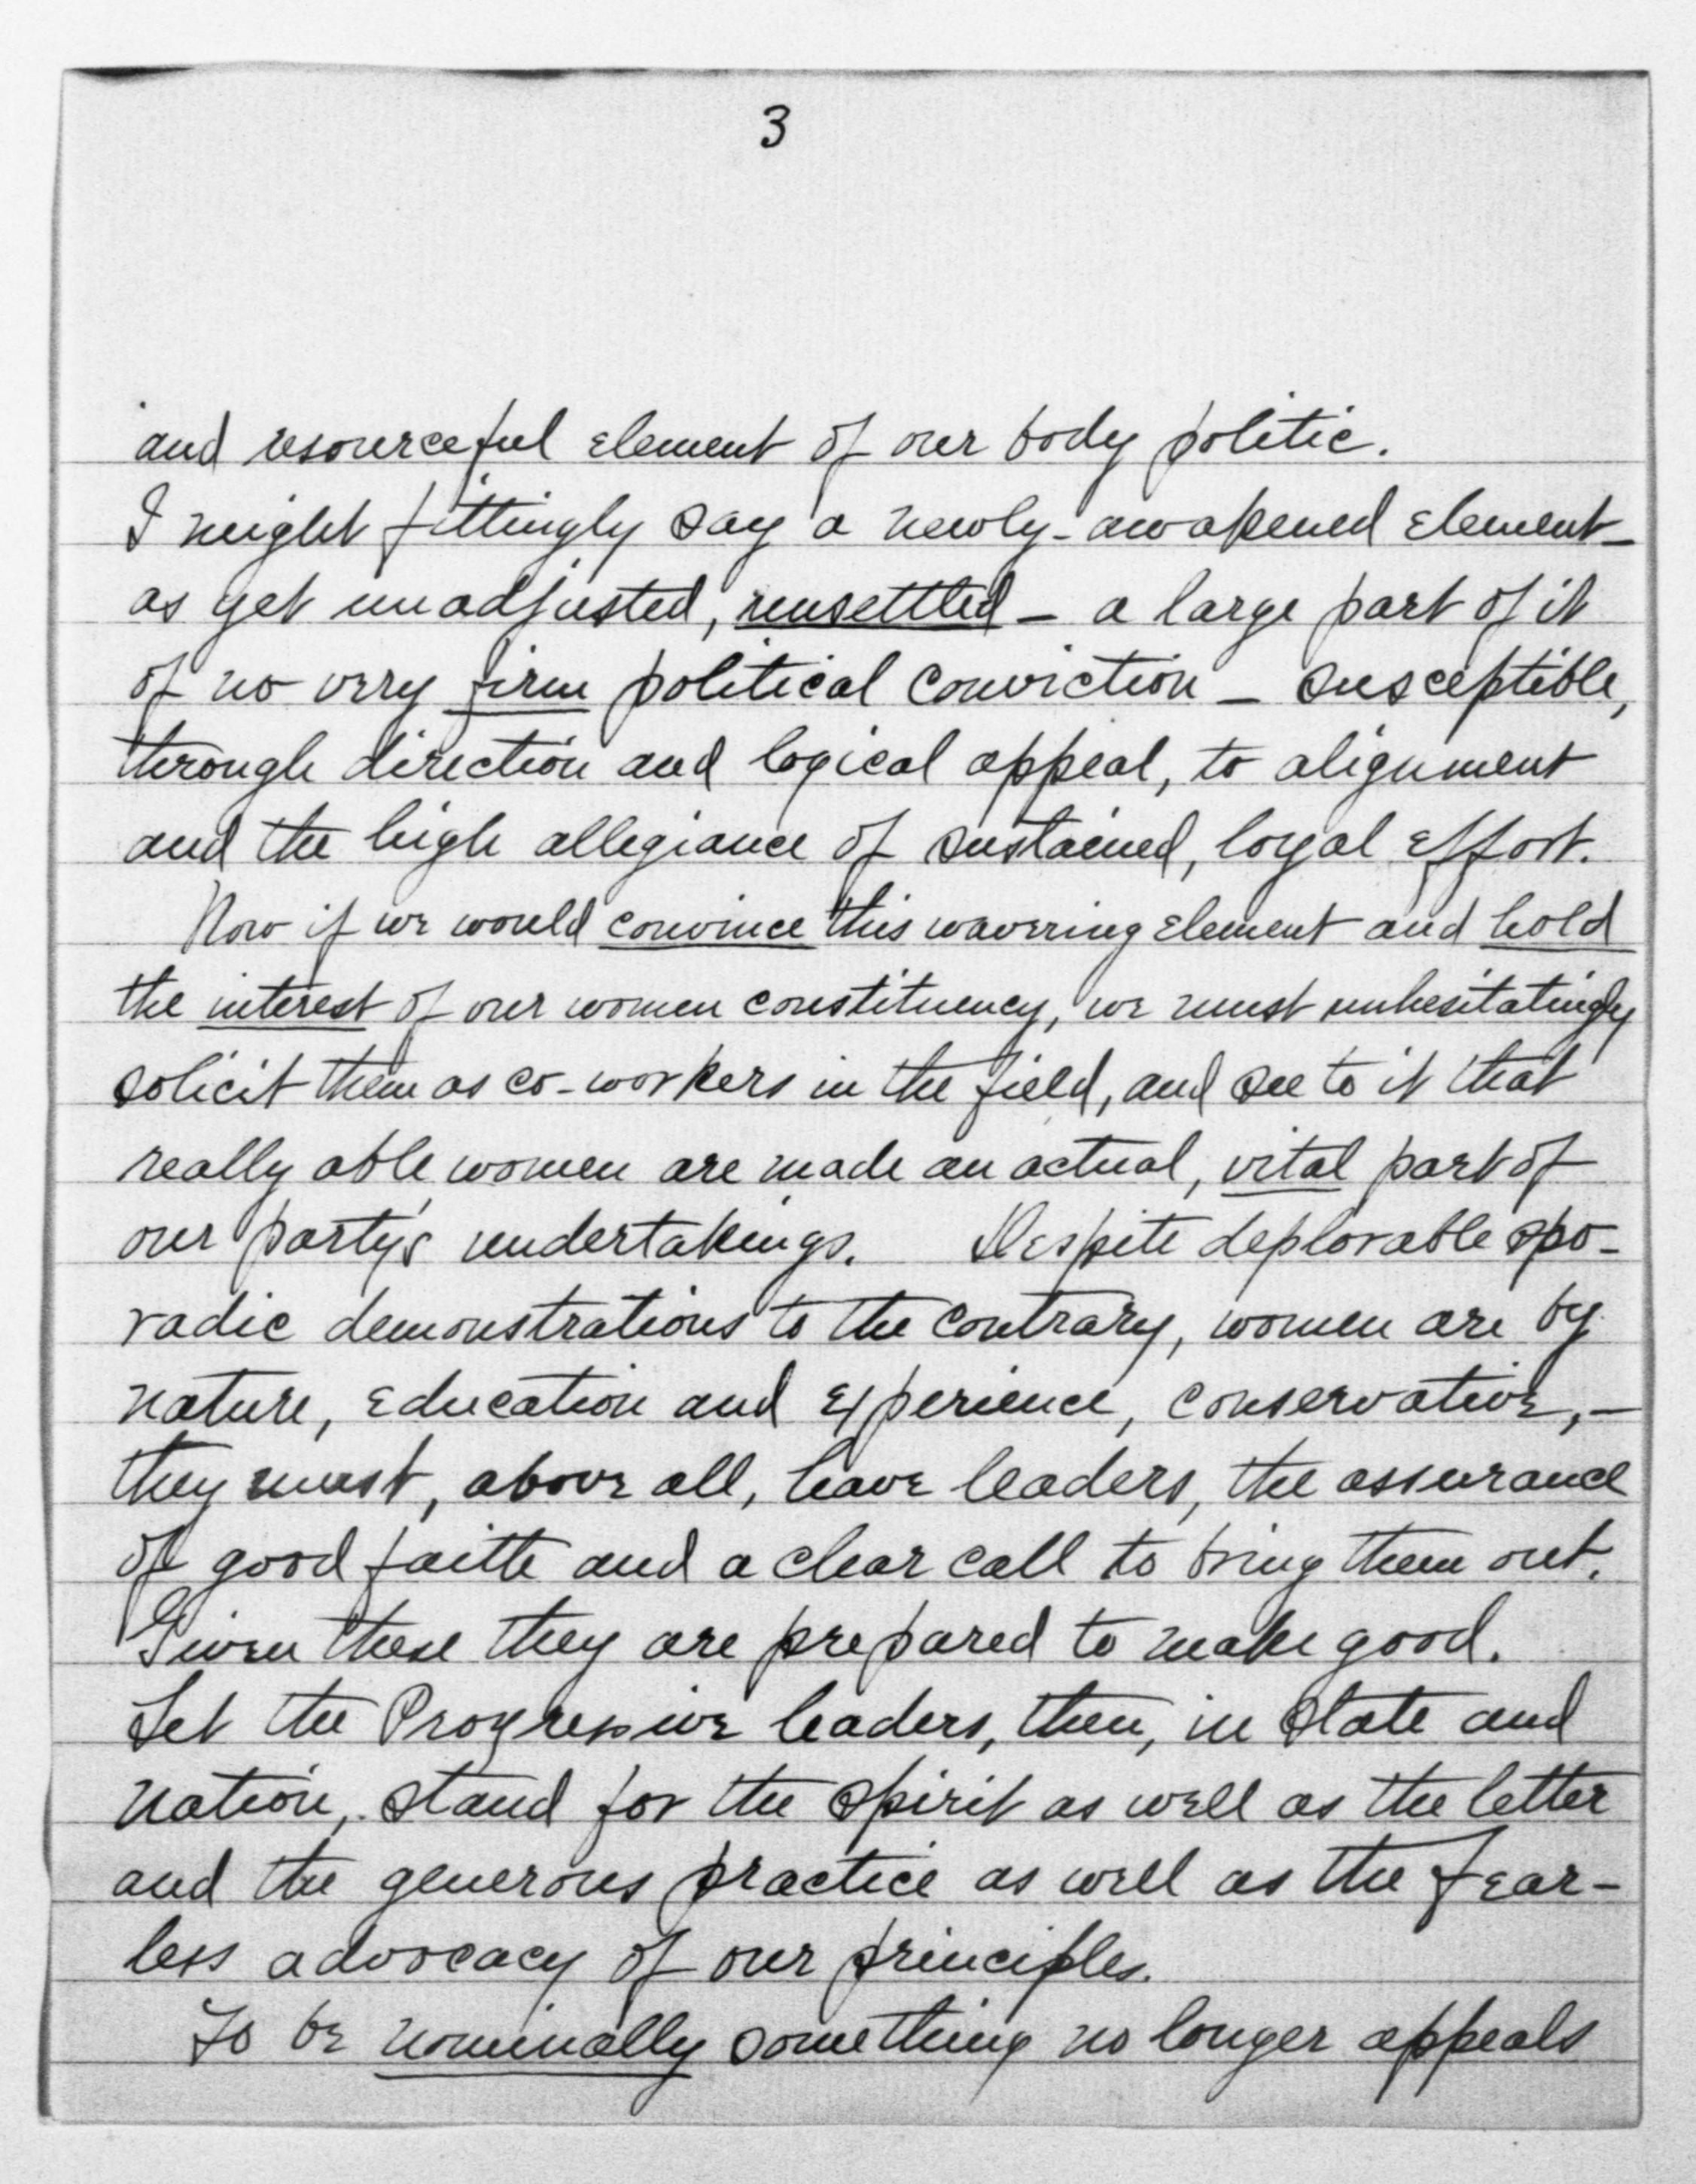 3
and resourceful element of our body politic.
I might fittingly say a newly-awakened element_
as yet unadjusted, unsettled – a large part of it
of no very firm political conviction – susceptible,
through direction and logical appeal, to alignment
and the high allegiance of sustained, loyal effort.
Now if we would convince this wavering element and hold
the interest of our women constituency, we must unhesitatingly
solicit them as co-workers in the field, and see to it that
really able women are made an actual, vital part of
our party's undertakings. Despite deplorable spo-
radic demonstrations to the contrary, women are by
nature, education and experience, conservative,–
they must, above all, have leaders, the assurance
of good faith and a clear call to bring them out.
Given these they are prepared to make good.
Let the Progressive leaders, then, in State and
Nation, stand for the spirit as well as the letter
and the generous practice as well as the fear-
less advocacy of our principles.
To be nominally something no longer appeals